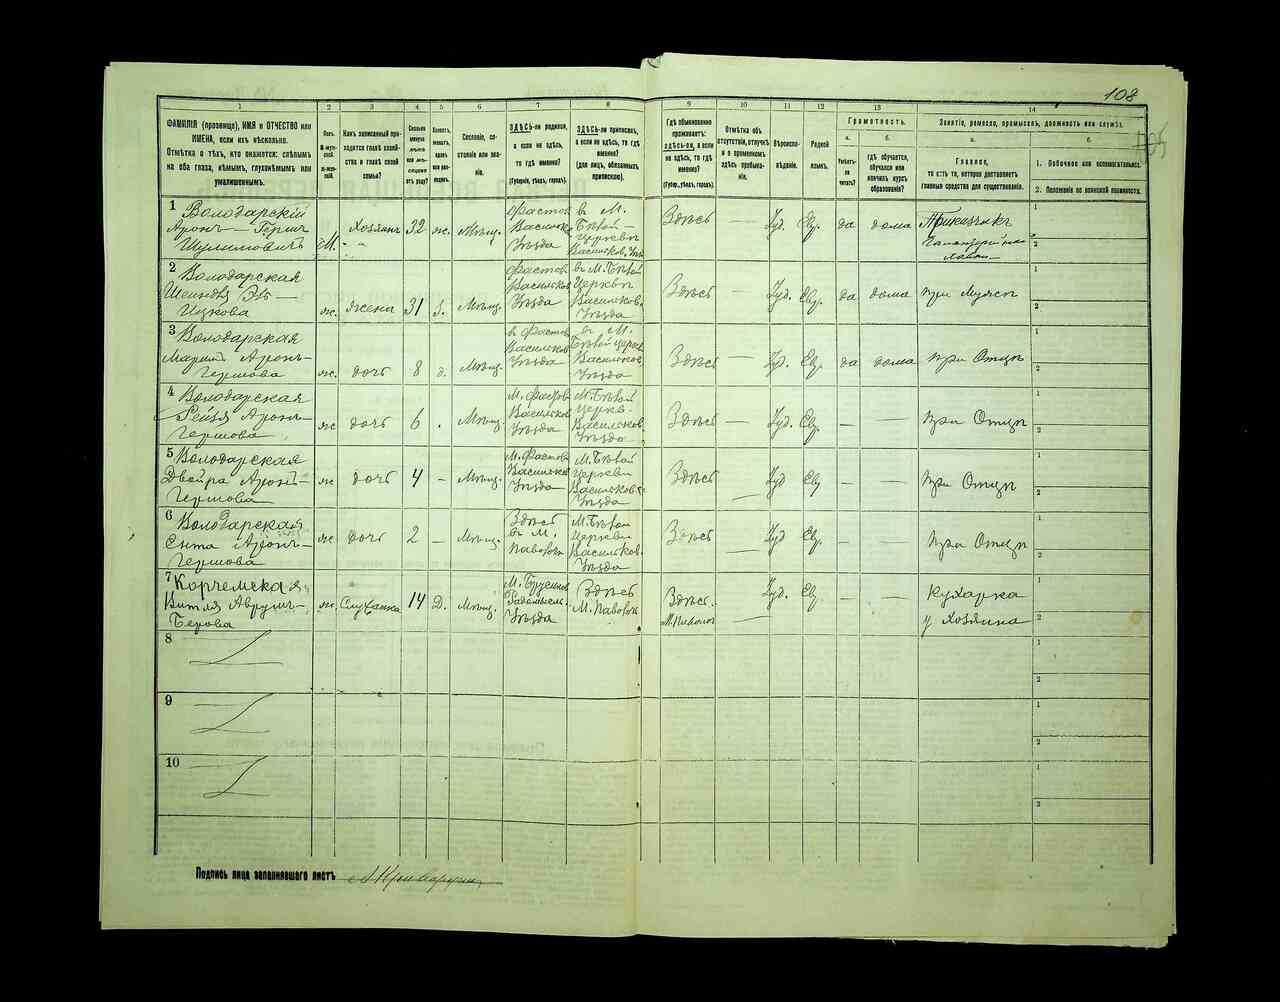 108
105
1 2 3 4 5 6 7 8 9 10 11 12 13 14
ФАМИЛІЯ (прозвище), ИМЯ и ОТЧЕСТВО или
ИМЕНА, если ихъ нѣсколько.
Отмѣтка о тѣхъ, кто окажется: слѣпымъ
на оба глаза, нѣмымъ, глухонѣмымъ или
умалишеннымъ.
Полъ.
М-мужской.
Ж-женскій.
Какъ записанный при-
ходится главѣ хозяй-
ства и главѣ своей
семьи?
Сколько
минуло
лѣтъ
Сословіе, со-
стояніе или зва-
ніе.
ЗДѢСЬ-ли родился,
а если не здѣсь,
то гдѣ именно?
(Губернія, уѣздъ, городъ).
ЗДѢСЬ-ли приписанъ,
а если не здѣсь, то гдѣ
именно?
(для лицъ, обязанныхъ
припискою).
Гдѣ обыкновенно
проживаетъ:
ЗДѢСЬ-ли, а если
не здѣсь, то гдѣ
именно?
(Губер., уѣздъ, городъ).
Отмѣтка объ
отсутствіи, отлучкѣ
и о временномъ
здѣсь пребыва-
ніи.
Вѣроиспо-
вѣданіе.
Родной
языкъ.
Грамотность.
а. б.
Умѣетъ-
ли
читать?
гдѣ обучается,
обучался или
кончилъ курсъ
образованія?
Занятіе, ремесло, промыселъ, должность или служба.
а. б.
Главное,
то есть то, которое доставляетъ
главныя средства для существованія.
1. Побочное или вспомогательное.
2. Положеніе по воинской повинности.
1 Володарскій
Аронъ-Гершъ
Шулимовичъ
М. Хозяинъ 32 ж. Мѣщ.
Фастов
Васильков
Уѣзда
въ М.
Бѣлой-
Церкви
Васильков. Уѣз
Здѣсь — Іуд. Евр. да дома
Приказчикъ
1
2
2 Володарская
Ицкова
ж. жена 31 з. Мѣщ.
Фастов
Васильков
Уѣзда
въ М. Бѣлой
Церкви
Васильков.
Уѣзда
Здѣсь — Іуд. Евр. да дома при Мужѣ
1
2
3 Володарская
Аронъ-
Гершова
ж. дочь 8 д. Мѣщ.
въ Фастов
Васильков
Уѣзда
въ М.
Бѣлой Церкв
Васильков
Уѣзда
Здѣсь — Іуд. Евр. да дома при Отцѣ
1
2
4 Володарская
Рейзя Аронъ-
Гершова
ж дочь 6 . Мѣщ.
М. Фастов
Васильков
Уѣзда
М. Бѣлой
Церкв-
Васильков
Уѣзда
Здѣсь — Іуд. Евр. — — при Отцѣ
1
2
5 Володарская
Двойра Аронъ-
Гершова
ж дочь 4 — Мѣщ.
М. Фастов
Васильков
Уѣзда
М. Бѣлой
Церкви
Васильков
Уѣзда
Здѣсь — Іуд Евр — — при Отцѣ
1
2
6 Володарская
Сита Аронъ-
Гершова
ж дочь 2 — Мѣщ.
Здѣсь
въ М.
Паволочь
М. Бѣлой
Церкви
Васильков.
Уѣзда
Здѣсь — Іуд Евр. — — при Отцѣ
1
2
7 Корчемская
Аврумъ-
Берова
ж. Служанка 14 Д. Мѣщ.
М. Брусилов
Радомысль.
Уѣзда
Здѣсь
М. Паволоч
Здѣсь.
М. Паволоч
— Іуд. Евр. — —
Кухарка
у Хозяина
1
2
8
1
2
9
1
2
10
1
2
Подпись лица заполнявшаго листъ